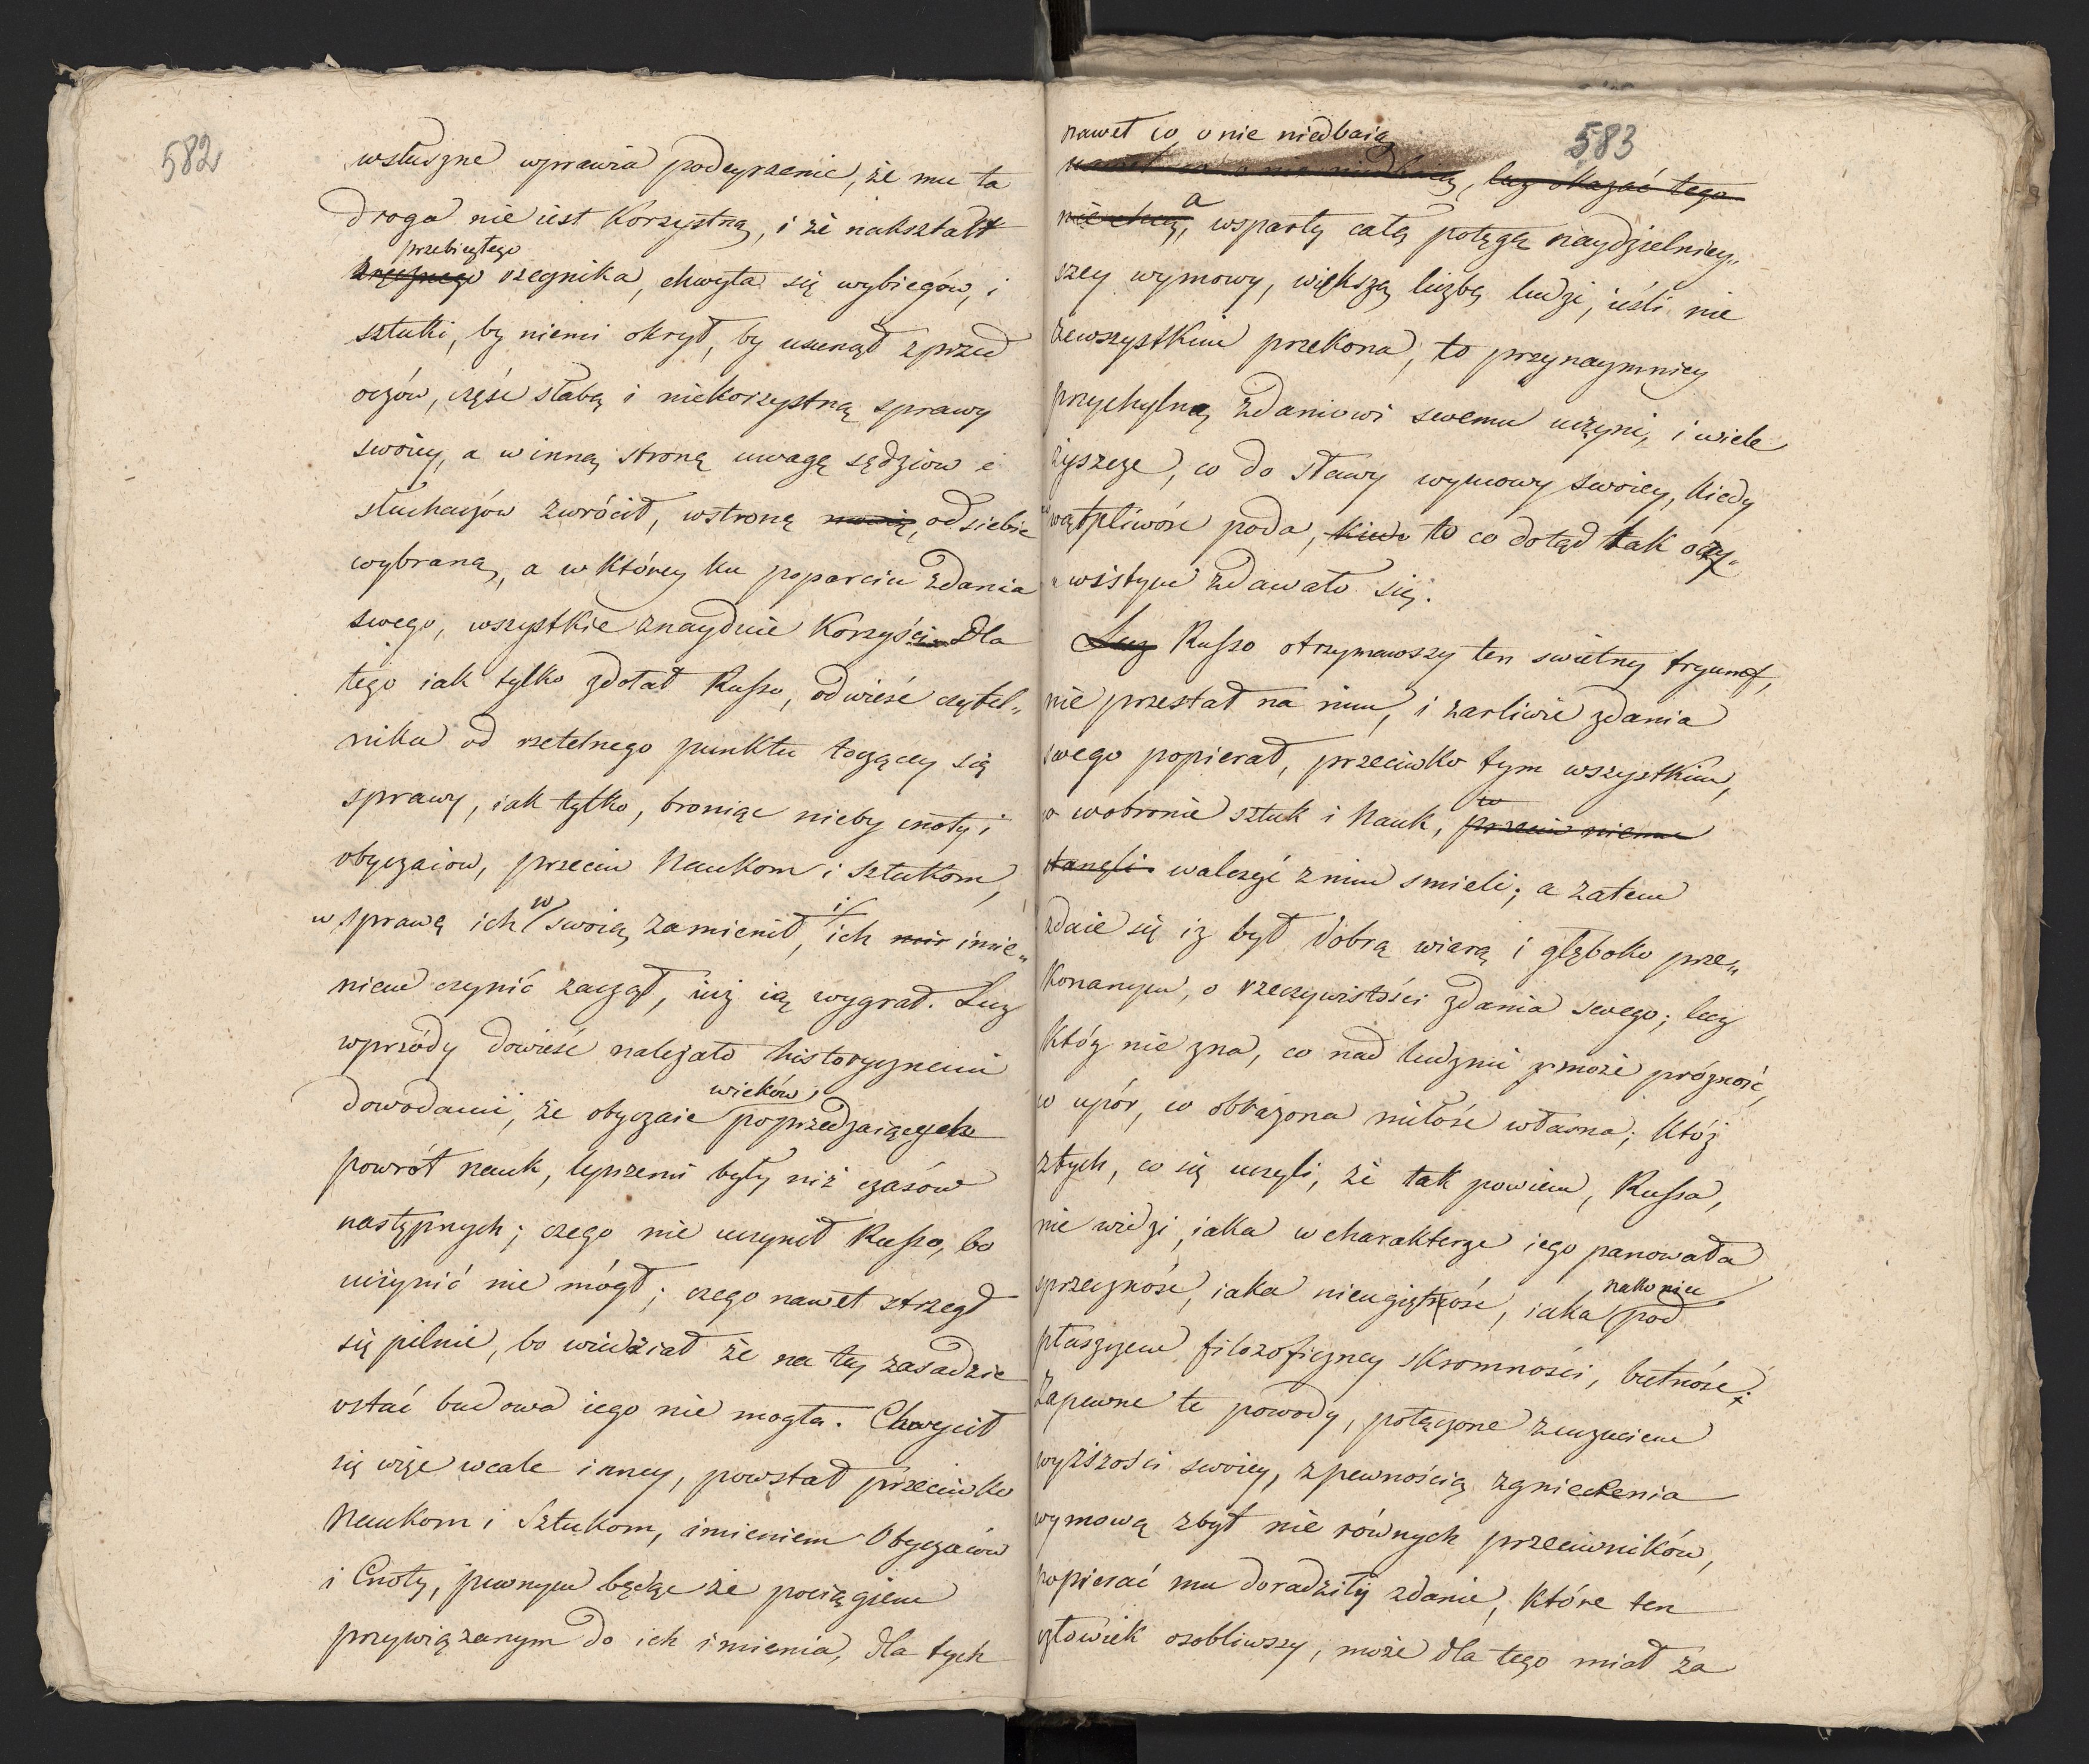 582
wsłuszne wprawia podeyrzenie, że mu ta
droga nie iest Korzystną, i że nakształt
przebiegłego
zręcznego rzecznika, chwyta się wybiegów, i
sztuki, by niemi okrył, by usunął zprzed
oczów, część słabą i niekorzystną sprawy
swoiey, a w inną stronę uwagę sędziow i
słuchaczów zwrócił, wstronę od siebie
wybraną, a w którey ku poparciu zdania
swego, wszystkie znayduie Korzyści. Dla
tego iak tylko zdołał Russo, odwieść czytel„
nika od rzetelnego punktu toczącey się
sprawy, iak tylko, broniąc nieby cnoty i
obyczaiow, przeciw Naukom i Sztukom,
w sprawę ich w swoią zamienił, i ich imie„
niem czynić zaczął, iuż ią wygrał. Lecz
wprzódy dowieść należało historycznemi
wieków
dowodami, że obyczaie poprzedzaiących
powrót nauk, lepszemi były niż czasów
następnych; czego nie uczynił Russo, bo
uczynić nie mógł; czego nawet strzegł
się pilnie, bo wiedział że na tey zasadzie
ostać budowa iego nie mogła. Chwycił
się więc wcale inney, powstał przeciwko
Naukom i Sztukom, imieniem Obyczaiów
i Cnoty, pewnym będąc że pociągiem
przywiązanym do ich imienia, dla tych
583
nawet co o nie niedbaią
nawet co o nie niedbaią, lecz okazać tego
nie chcą, a wsparty całą potęgą naydzielniey„
szey wymowy, większą liczbę ludzi, ieśli nie
zewszystkim przekona, to przynaymniey
przychylną zdaniowi swemu uczyni, i wiele
zyszcze, co do sławy wymowy swoiey, kiedy
wątpliwość poda, to co dotąd tak oczy„
„wistym zdawało się.
Lecz Russo otrzymawszy ten swietny tryumf,
nie przestał na nim, i żarliwie zdania
swego popierał, przeciwko tym wszystkim,
co wobronie sztuk i Nauk, przeciw niemu
stanęli walczyć z nim smieli; a zatem
zdaie się iż był dobrą wiarą i głęboko prze„
konanym, o rzeczywistości zdania swego; lecz
któż nie zna, co nad ludzmi może prózność,
co upór, co obrażona miłość własna; któż
ztych, co się uczyli, że tak powiem, Russa,
nie widzi, iaka w charakterze iego panowała
sprzeczność, iaka nieugiętość, iaka nakoniec pod
płaszczem filozoficzney skromności, butność;
Zapewne te powody, połączone z uczuciem
wyższości swoiey, z pewnością zgniecenia
wymową zbyt nie równych przeciwników,
popierać mu doradziły zdanie, które ten
człowiek osobliwszy, może dla tego miał za